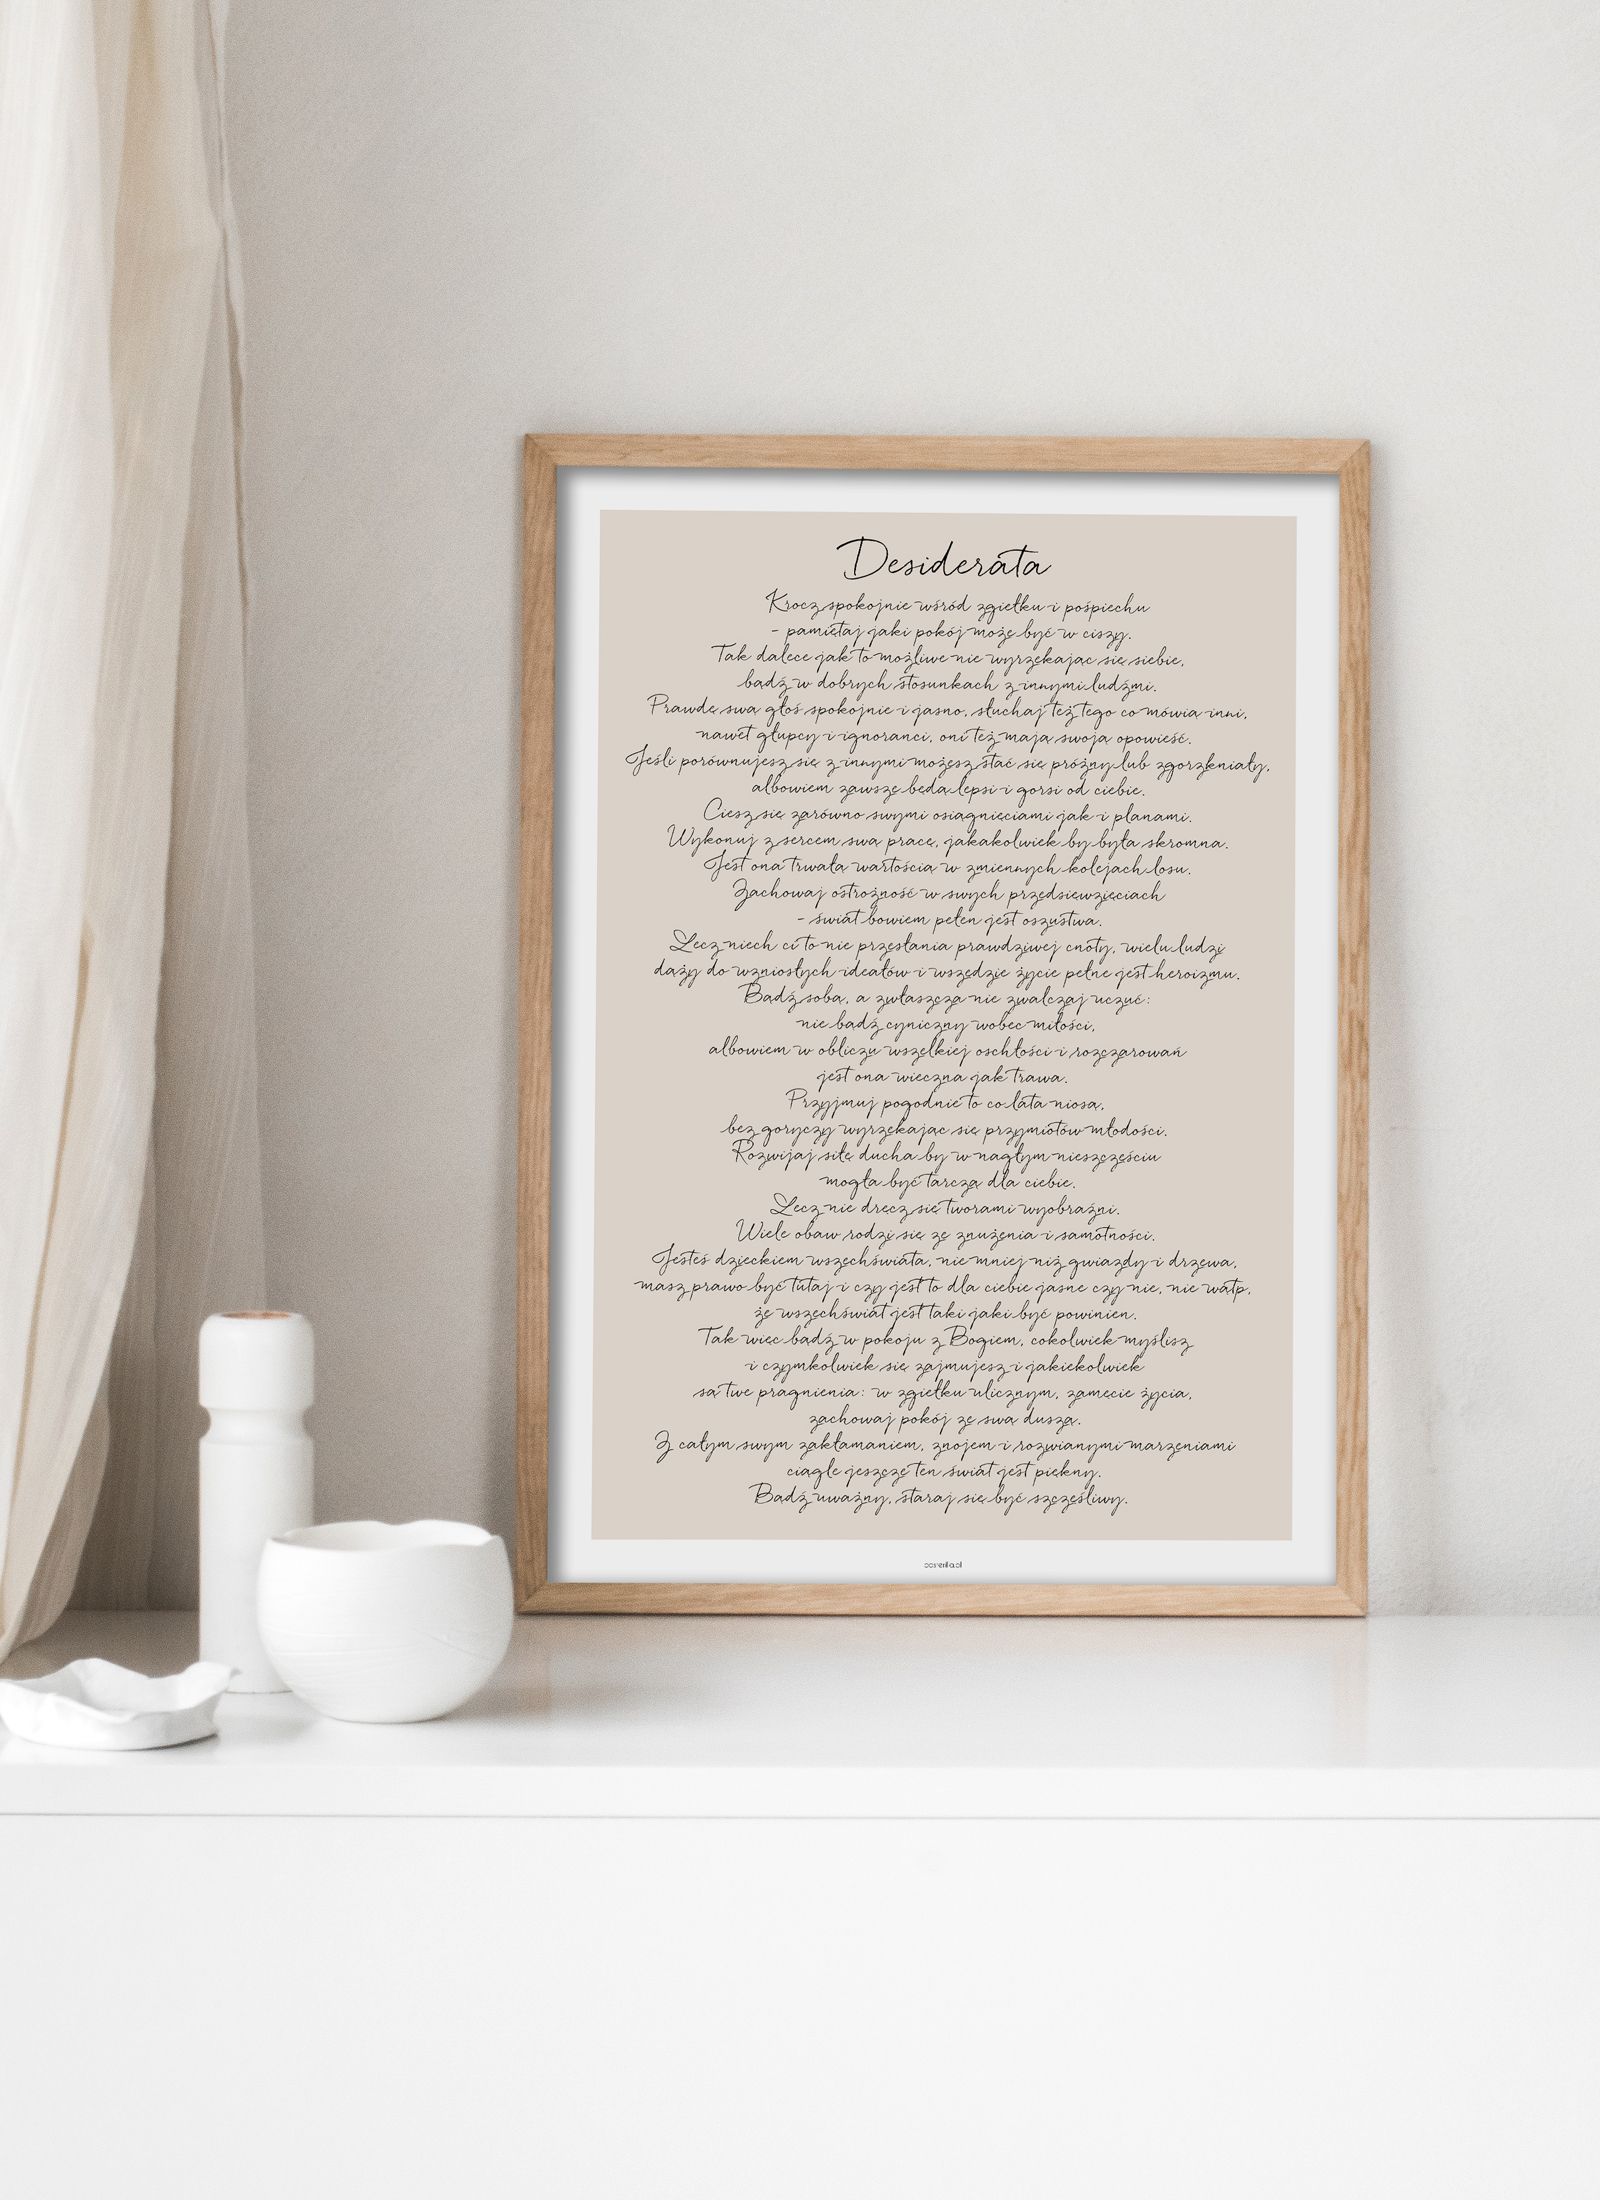 Desiderata
Krocz spokojnie wśród zgiełku i pośpiechu
- pamiętaj jaki pokój może być w ciszy.
Tak dalece jak to możliwe nie wyrzekając się siebie,
bądź w dobrych stosunkach z innymi ludźmi.
Prawdę swą głoś spokojnie i jasno, słuchaj też tego co mówią inni,
nawet głupcy i ignoranci, oni też mają swoją opowieść.
Jeśli porównujesz się z innymi możesz stać się próżny lub zgorzkniały,
albowiem zawsze będą lepsi i gorsi od ciebie.
Ciesz się zarówno swymi osiągnięciami jak i planami.
Wykonuj z sercem swą pracę, jakakolwiek by była skromna.
Jest ona trwałą wartością w zmiennych kolejach losu.
Zachowaj ostrożność w swych przedsięwzięciach
- świat bowiem pełen jest oszustwa.
Lecz niech ci to nie przesłania prawdziwej cnoty, wielu ludzi
dąży do wzniosłych ideałów i wszędzie życie pełne jest heroizmu.
Bądź sobą, a zwłaszcza nie zwalczaj uczuć:
nie bądź cyniczny wobec miłości,
albowiem w obliczu wszelkiej oschłości i rozczarowań
jest ona wieczna jak trawa.
Przyjmuj pogodnie to co lata niosą,
bez goryczy wyrzekając się przymiotów młodości.
Rozwijaj siłę ducha by w nagłym nieszczęściu
mogła być tarczą dla ciebie.
Lecz nie dręcz się tworami wyobraźni.
Wiele obaw rodzi się ze znużenia i samotności.
Jesteś dzieckiem wszechświata, nie mniej niż gwiazdy i drzewa,
masz prawo być tutaj i czy jest to dla ciebie jasne czy nie, nie wątp,
że wszechświat jest taki jaki być powinien.
Tak więc bądź w pokoju z Bogiem, cokolwiek myślisz
i czymkolwiek się zajmujesz i jakiekolwiek
są twe pragnienia: w zgiełku ulicznym, zamęcie życia,
zachowaj pokój ze swą duszą.
Z całym swym zakłamaniem, znojem i rozwianymi marzeniami
ciągle jeszcze ten świat jest piękny.
Bądź uważny, staraj się być szczęśliwy.